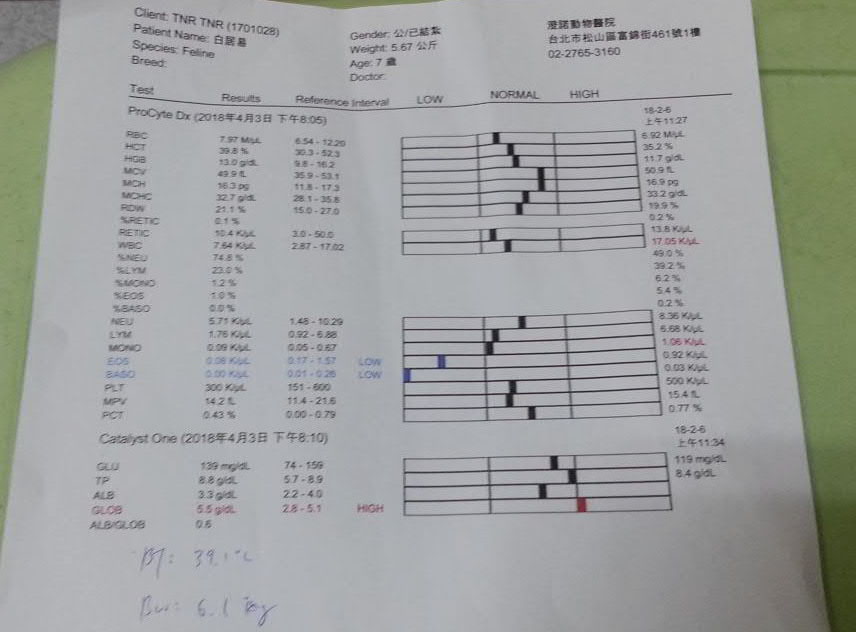 Client: TNR TNR (1701028)
Patient Name: 白居易
Species: Feline
Breed:
Gender: 公/已結紮
Weight: 5.67 公斤
Age: 7 歲
Doctor:
澄諾動物醫院
台北市松山區富錦街461號1樓
02-2765-3160
Test Results Reference Interval LOW NORMAL HIGH
ProCyte Dx (2018年4月3日 下午8:05) 18-2-6 上午11:27
RBC 7.97 M/µL 6.54 - 12.20 6.92 M/µL
HCT 39.8 % 30.3 - 52.3 35.2 %
HGB 13.0 g/dL 9.8 - 16.2 11.7 g/dL
MCV 49.9 fL 35.9 - 53.1 50.9 fL
MCH 16.3 pg 11.8 - 17.3 16.9 pg
MCHC 32.7 g/dL 28.1 - 35.8 33.2 g/dL
RDW 21.1 % 15.0 - 27.0 19.9 %
%RETIC 0.1 % 0.2 %
RETIC 10.4 K/µL 3.0 - 50.0 13.8 K/µL
WBC 7.64 K/µL 2.87 - 17.02 17.05 K/µL
%NEU 74.8 % 49.0 %
%LYM 23.0 % 39.2 %
%MONO 1.2 % 6.2 %
%EOS 1.0 % 5.4 %
%BASO 0.0 % 0.2 %
NEU 5.71 K/µL 1.48 - 10.29 8.36 K/µL
LYM 1.76 K/µL 0.92 - 6.88 6.68 K/µL
MONO 0.09 K/µL 0.05 - 0.67 1.06 K/µL
EOS 0.08 K/µL 0.17 - 1.57 LOW 0.92 K/µL
BASO 0.00 K/µL 0.01 - 0.26 LOW 0.03 K/µL
PLT 300 K/µL 151 - 600 500 K/µL
MPV 14.2 fL 11.4 - 21.6 15.4 fL
PCT 0.43 % 0.00 - 0.79 0.77 %
Catalyst One (2018年4月3日 下午8:10) 18-2-6 上午11:34
GLU 139 mg/dL 74 - 159 119 mg/dL
TP 8.8 g/dL 5.7 - 8.9 8.4 g/dL
ALB 3.3 g/dL 2.2 - 4.0
GLOB 5.5 g/dL 2.8 - 5.1 HIGH
ALB/GLOB 0.6
BT: 39.1°C
BW: 6.1 kg